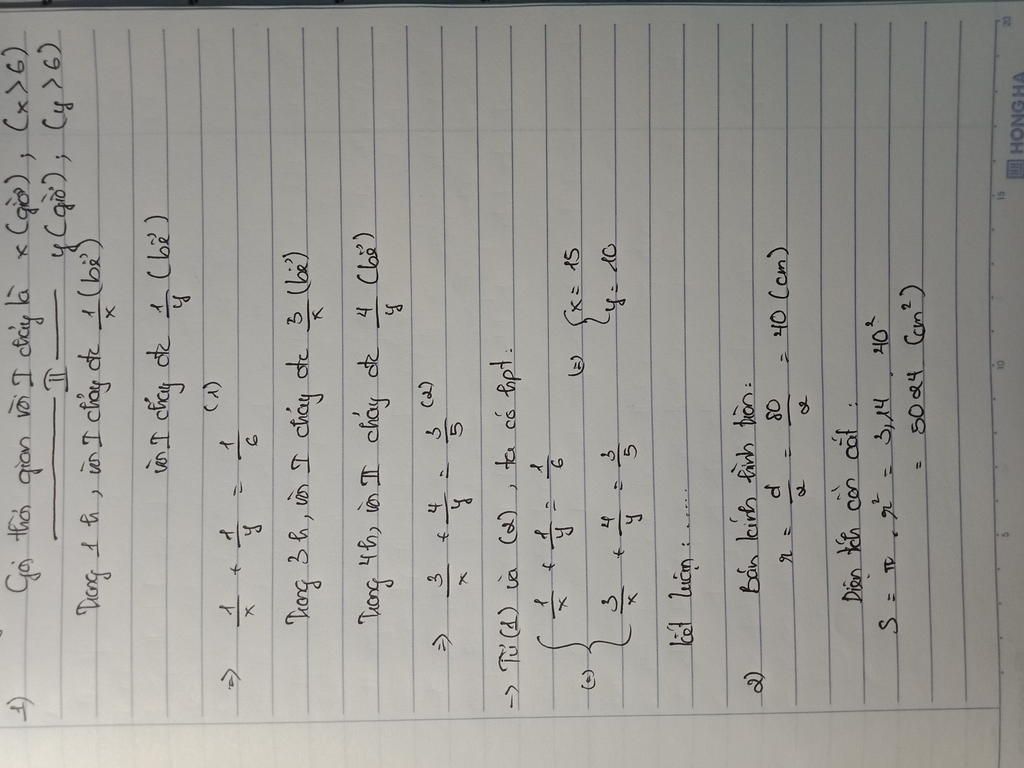 1) Gọi thời gian vòi I chảy là x (giờ) ; (x > 6)
II y (giờ) ; (y > 6)
Trong 1 h, vòi I chảy đc 1/x (bể)
vòi I chảy đc 1/y (bể)
=> 1/x + 1/y = 1/6 (1)
Trong 3h, vòi I chảy đc 3/x (bể)
Trong 4h, vòi II chảy đc 4/y (bể)
=> 3/x + 4/y = 3/5 (2)
-> Từ (1) và (2), ta có hpt:
(=) { 1/x + 1/y = 1/6 ; 3/x + 4/y = 3/5 (=) { x = 15 ; y = 10
Kết luận : .......
2) Bán kính hình tròn:
r = d/2 = 80/2 = 40 (cm)
Diện tích cần cắt :
S = π . r² = 3,14 . 40²
= 5024 (cm²)
HONG HA
5 10 15 20